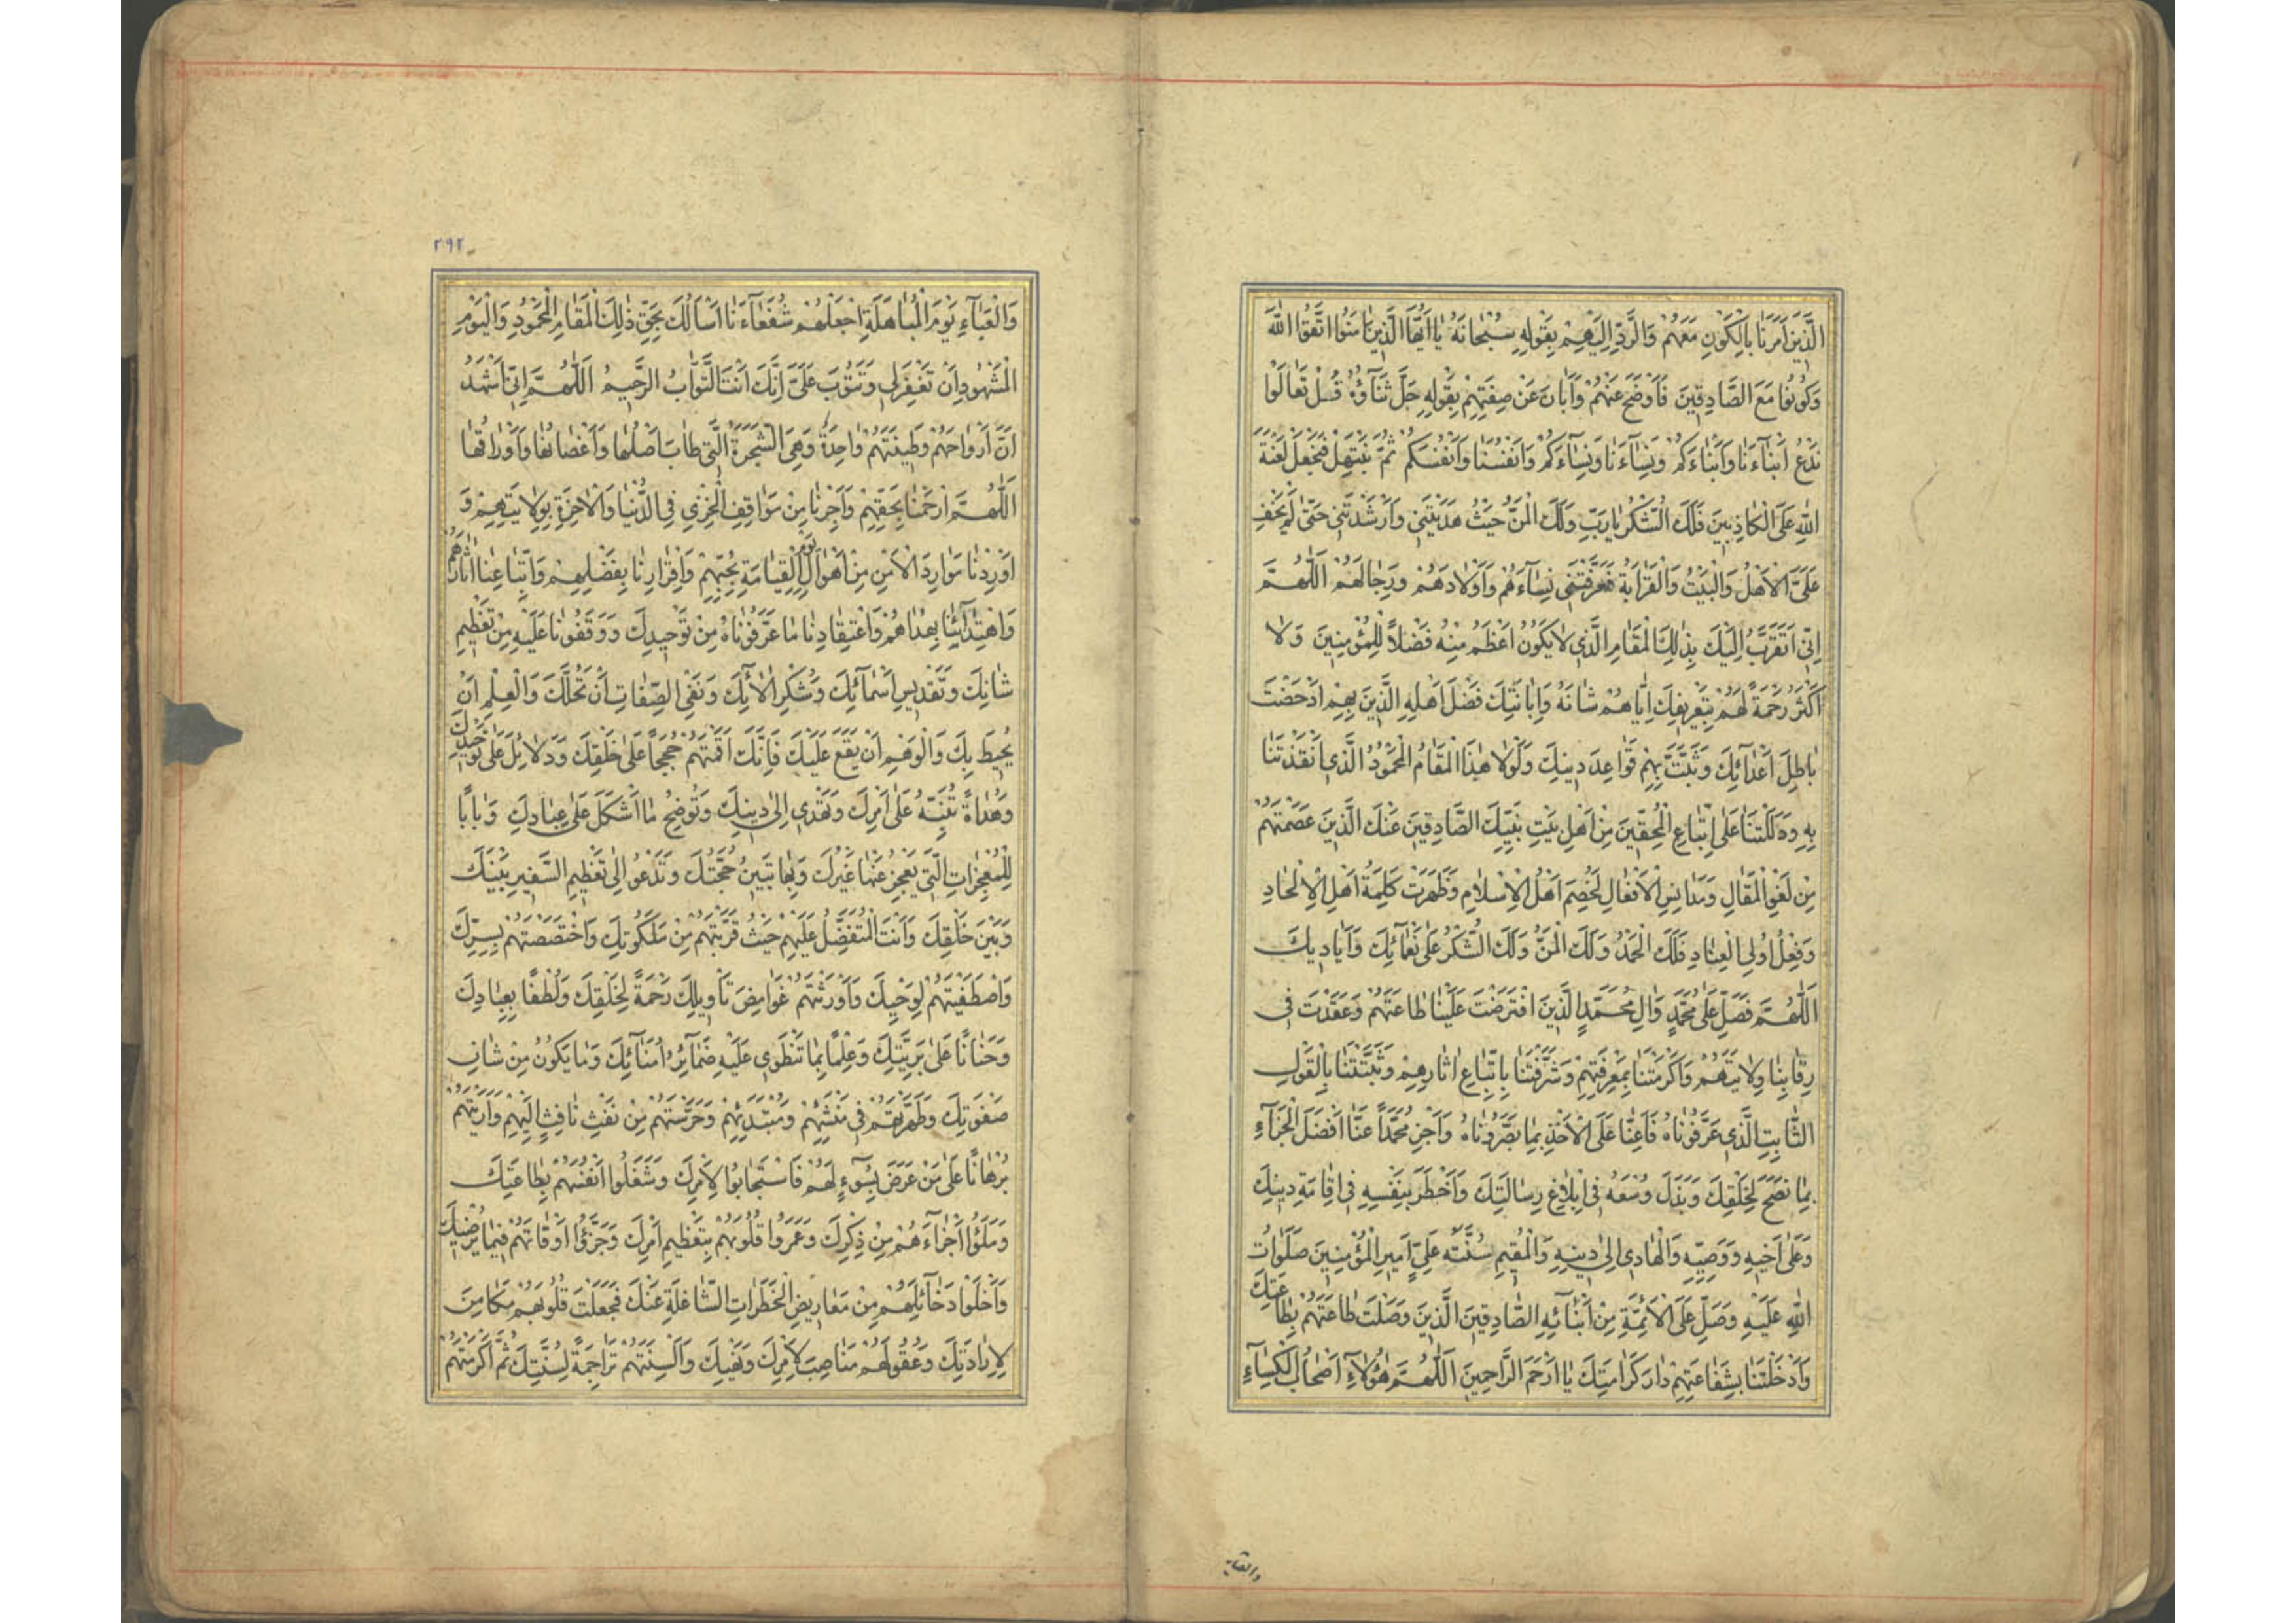 الَّذِينَ أَمَرْتَنَا بِالْكَوْنِ مَعَهُمْ وَالرَّدِّ إِلَيْهِمْ بِقَوْلِهِ سُبْحَانَهُ يَا أَيُّهَا الَّذِينَ آمَنُوا اتَّقُوا اللَّهَ
وَكُونُوا مَعَ الصَّادِقِينَ فَأَوْضَحَ عَنْهُمْ وَأَبَانَ عَنْ صِفَتِهِمْ بِقَوْلِهِ جَلَّ ثَنَاؤُهُ قُلْ تَعَالَوْا
نَدْعُ أَبْنَاءَنَا وَأَبْنَاءَكُمْ وَنِسَاءَنَا وَنِسَاءَكُمْ وَأَنْفُسَنَا وَأَنْفُسَكُمْ ثُمَّ نَبْتَهِلْ فَنَجْعَلْ لَعْنَةَ
اللَّهِ عَلَى الْكَاذِبِينَ فَلَكَ الشُّكْرُ يَا رَبِّ وَلَكَ الْمَنُّ حَيْثُ هَدَيْتَنِي وَأَرْشَدْتَنِي حَتَّى لَمْ يَخْفَ
عَلَيَّ الْأَهْلُ وَالْبَيْتُ وَالْقَرَابَةُ فَعَرَّفْتَنِي نِسَاءَهُمْ وَأَوْلَادَهُمْ وَرِجَالَهُمْ اللَّهُمَّ
إِنِّي أَتَقَرَّبُ إِلَيْكَ بِذَلِكَ الْمَقَامِ الَّذِي لَا يَكُونُ أَعْظَمَ مِنْهُ فَضْلًا لِلْمُؤْمِنِينَ وَلَا
أَكْثَرَ رَحْمَةً لَهُمْ بِتَعْرِيفِكَ إِيَّاهُمْ شَأْنَهُ وَإِبَانَتِكَ فَضْلَ أَهْلِهِ الَّذِينَ بِهِمْ أَدْحَضْتَ
بَاطِلَ أَعْدَائِكَ وَثَبَّتَّ بِهِمْ قَوَاعِدَ دِينِكَ وَلَوْلَا هَذَا الْمَقَامُ الْمَحْمُودُ الَّذِي أَنْقَذْتَنَا
بِهِ وَدَلَلْتَنَا عَلَى اتِّبَاعِ الْمُحِقِّينَ مِنْ أَهْلِ بَيْتِ نَبِيِّكَ الصَّادِقِينَ عَنْكَ الَّذِينَ عَصَمْتَهُمْ
مِنْ لَغْوِ الْمَقَالِ وَمَدَانِسِ الْأَفْعَالِ لَخُصِمَ أَهْلُ الْإِسْلَامِ وَظَهَرَتْ كَلِمَةُ أَهْلِ الْإِلْحَادِ
وَفِعْلُ أُولِي الْعِنَادِ فَلَكَ الْحَمْدُ وَلَكَ الْمَنُّ وَلَكَ الشُّكْرُ عَلَى نَعْمَائِكَ وَأَيَادِيكَ
اللَّهُمَّ فَصَلِّ عَلَى مُحَمَّدٍ وَآلِ مُحَمَّدٍ الَّذِينَ افْتَرَضْتَ عَلَيْنَا طَاعَتَهُمْ وَعَقَدْتَ فِي
رِقَابِنَا وِلَايَتَهُمْ وَأَكْرَمْتَنَا بِمَعْرِفَتِهِمْ وَشَرَّفْتَنَا بِاتِّبَاعِ آثَارِهِمْ وَثَبَّتَّنَا بِالْقَوْلِ
الثَّابِتِ الَّذِي عَرَّفُونَاهُ فَأَعِنَّا عَلَى الْأَخْذِ بِمَا بَصَّرُونَاهُ وَاجْزِ مُحَمَّدًا عَنَّا أَفْضَلَ الْجَزَاءِ
بِمَا نَصَحَ لِخَلْقِكَ وَبَذَلَ وُسْعَهُ فِي إِبْلَاغِ رِسَالَتِكَ وَأَخْطَرَ بِنَفْسِهِ فِي إِقَامَةِ دِينِكَ
وَعَلَى أَخِيهِ وَوَصِيِّهِ وَالْهَادِي إِلَى دِينِهِ وَالْمُقِيمِ سُنَّتَهُ عَلِيٍّ أَمِيرِ الْمُؤْمِنِينَ صَلَوَاتُ
اللَّهِ عَلَيْهِ وَصَلِّ عَلَى الْأَئِمَّةِ مِنْ أَبْنَائِهِ الصَّادِقِينَ الَّذِينَ وَصَلْتَ طَاعَتَهُمْ بِطَاعَتِكَ
وَأَدْخَلْتَنَا بِشَفَاعَتِهِمْ دَارَ كَرَامَتِكَ يَا أَرْحَمَ الرَّاحِمِينَ اللَّهُمَّ هَؤُلَاءِ أَصْحَابُ الْكِسَاءِ
والعباء
٢٩٢
وَالْعَبَاءِ يَوْمَ الْمُبَاهَلَةِ اجْعَلْهُمْ شُفَعَاءَنَا أَسْأَلُكَ بِحَقِّ ذَلِكَ الْمَقَامِ الْمَحْمُودِ وَالْيَوْمِ
الْمَشْهُودِ أَنْ تَغْفِرَ لِي وَتَتُوبَ عَلَيَّ إِنَّكَ أَنْتَ التَّوَّابُ الرَّحِيمُ اللَّهُمَّ إِنِّي أَشْهَدُ
أَنَّ أَرْوَاحَهُمْ وَطِينَتَهُمْ وَاحِدَةٌ وَهِيَ الشَّجَرَةُ الَّتِي طَابَ أَصْلُهَا وَأَغْصَانُهَا وَأَوْرَاقُهَا
اللَّهُمَّ ارْحَمْنَا بِحَقِّهِمْ وَأَجِرْنَا مِنْ مَوَاقِفِ الْخِزْيِ فِي الدُّنْيَا وَالْآخِرَةِ بِوِلَايَتِهِمْ وَ
أَوْرِدْنَا مَوَارِدَ الْأَمْنِ مِنْ أَهْوَالِ يَوْمِ الْقِيَامَةِ بِحُبِّهِمْ وَإِقْرَارِنَا بِفَضْلِهِمْ وَاتِّبَاعِنَا آثَارَهُمْ
وَاهْتِدَائِنَا بِهُدَاهُمْ وَاعْتِقَادِنَا مَا عَرَّفُونَاهُ مِنْ تَوْحِيدِكَ وَوَقَّفُونَا عَلَيْهِ مِنْ تَعْظِيمِ
شَأْنِكَ وَتَقْدِيسِ أَسْمَائِكَ وَشُكْرِ آلَائِكَ وَنَفْيِ الصِّفَاتِ أَنْ تَحُلَّكَ وَالْعِلْمِ أَنْ
يُحِيطَ بِكَ وَالْوَهْمِ أَنْ يَقَعَ عَلَيْكَ فَإِنَّكَ أَقَمْتَهُمْ حُجَجًا عَلَى خَلْقِكَ وَدَلَائِلَ عَلَى تَوْحِيدِكَ
وَهُدَاةً تُنَبِّهُ عَلَى أَمْرِكَ وَتَهْدِي إِلَى دِينِكَ وَتُوضِحُ مَا أَشْكَلَ عَلَى عِبَادِكَ وَبَابًا
لِلْمُعْجِزَاتِ الَّتِي يَعْجِزُ عَنْهَا غَيْرُكَ وَبِهَا تَبِينُ حُجَّتُكَ وَتَدْعُو إِلَى تَعْظِيمِ السَّفِيرِ بَيْنَكَ
وَبَيْنَ خَلْقِكَ وَأَنْتَ الْمُتَفَضِّلُ عَلَيْهِمْ حَيْثُ قَرَّبْتَهُمْ مِنْ مَلَكُوتِكَ وَاخْتَصَصْتَهُمْ بِسِرِّكَ
وَاصْطَفَيْتَهُمْ لِوَحْيِكَ وَأَوْرَثْتَهُمْ غَوَامِضَ تَأْوِيلِكَ رَحْمَةً لِخَلْقِكَ وَلُطْفًا بِعِبَادِكَ
وَحَنَانًا عَلَى بَرِيَّتِكَ وَعِلْمًا بِمَا تَنْطَوِي عَلَيْهِ ضَمَائِرُ أُمَنَائِكَ وَمَا يَكُونُ مِنْ شَأْنِ
صَفْوَتِكَ وَطَهَّرْتَهُمْ فِي مَنْشَئِهِمْ وَمُبْتَدَئِهِمْ وَحَرَسْتَهُمْ مِنْ نَفْثِ نَافِثٍ إِلَيْهِمْ وَأَرَيْتَهُمْ
بُرْهَانًا عَلَى مَنْ عَرَضَ بِسُوءٍ لَهُمْ فَاسْتَجَابُوا لِأَمْرِكَ وَشَغَلُوا أَنْفُسَهُمْ بِطَاعَتِكَ
وَمَلَؤُوا أَجْزَاءَهُمْ مِنْ ذِكْرِكَ وَعَمَرُوا قُلُوبَهُمْ بِتَعْظِيمِ أَمْرِكَ وَجَزَّؤُوا أَوْقَاتَهُمْ فِيمَا يُرْضِيكَ
وَأَخْلَوْا دَخَائِلَهُمْ مِنْ مَعَارِيضِ الْخَطَرَاتِ الشَّاغِلَةِ عَنْكَ فَجَعَلْتَ قُلُوبَهُمْ مَكَامِنَ
لِإِرَادَتِكَ وَعُقُولَهُمْ مَنَاصِبَ لِأَمْرِكَ وَنَهْيِكَ وَأَلْسِنَتَهُمْ تَرَاجِمَةً لِسُنَّتِكَ ثُمَّ أَكْرَمْتَهُمْ